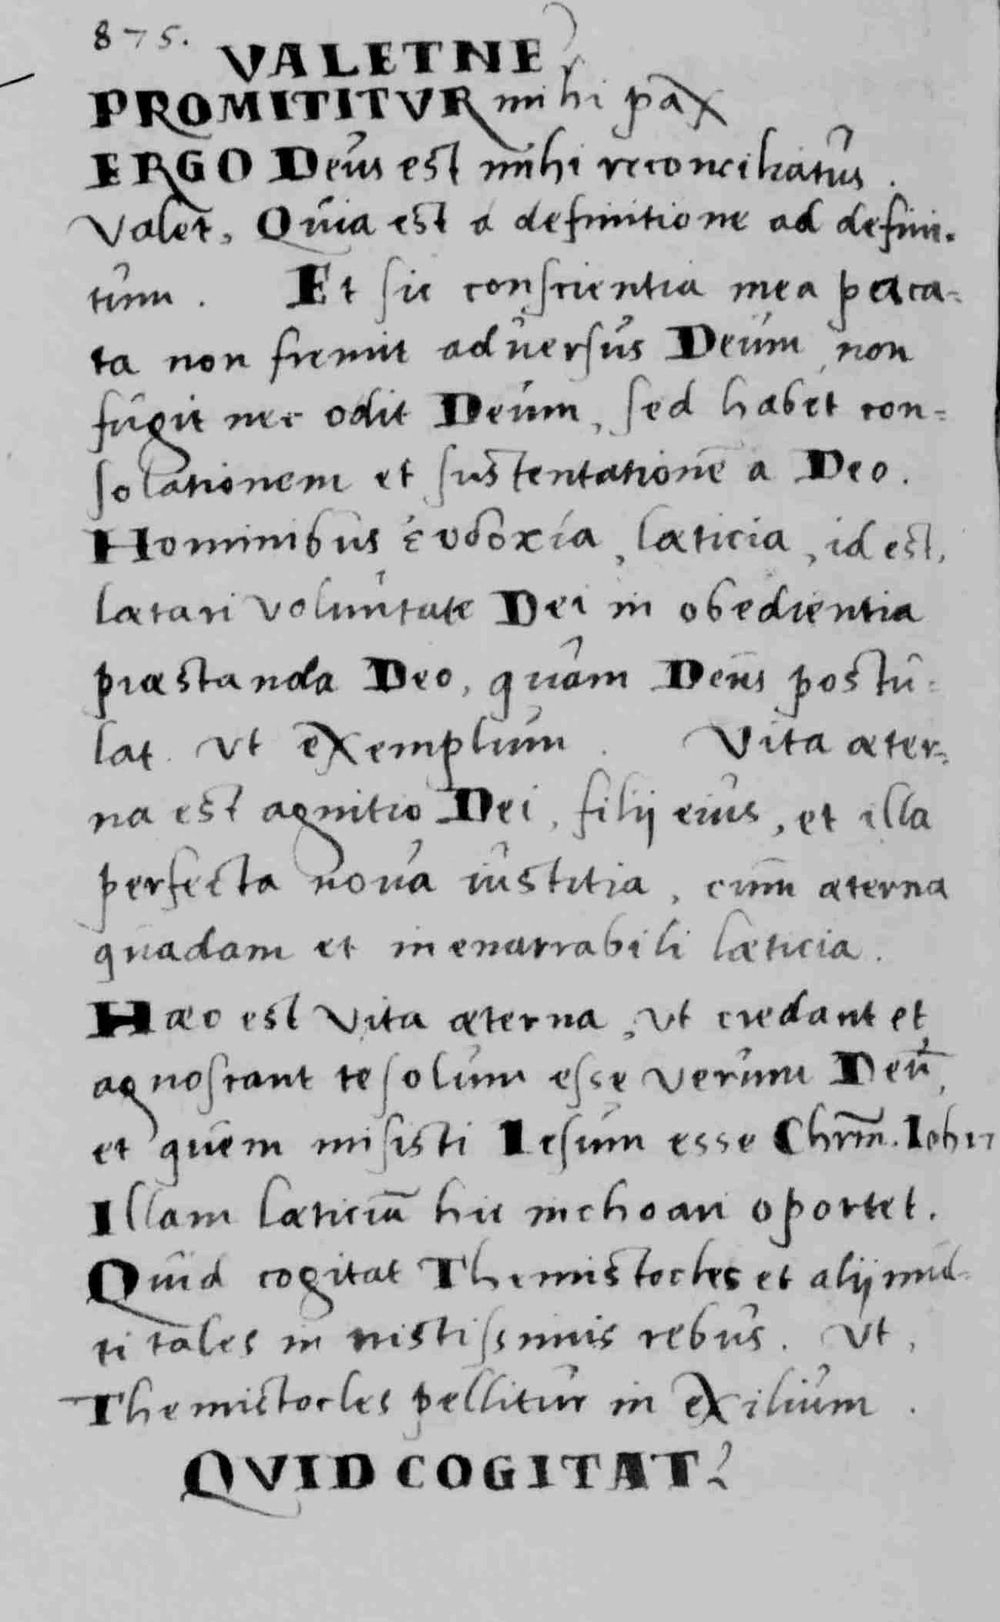 875.
VALETNE?
PROMITITVR mihi pax
ERGO Deus est mihi reconciliatus.
Valet, Quia est a definitione ad defini-
tum. Et sic conscientia mea paca-
ta non fremit adversus Deum, non
fugit nec odit Deum, sed habet con-
solationem et sustentationē a Deo.
Hominibus ἐυδοκία, læticia, id est,
lætari voluntate Dei in obedientia
præstanda Deo, quam Deus postu-
lat. Vt exemplum. Vita æter-
na est agnitio Dei, filij eius, et illa
perfecta nova iustitia, cum æterna
quadam et inenarrabili læticia.
Hæc est vita æterna, vt credant et
agnoscant te solum esse verum Deū,
et quem misisti Iesum esse Chrm̄. Ioh 17
Illam læticiā hic inchoari oportet.
Quid cogitat Themistocles et alij mul-
ti tales in tristissimis rebus. Vt,
Themistocles pellitur in exilium.
QVID COGITAT?